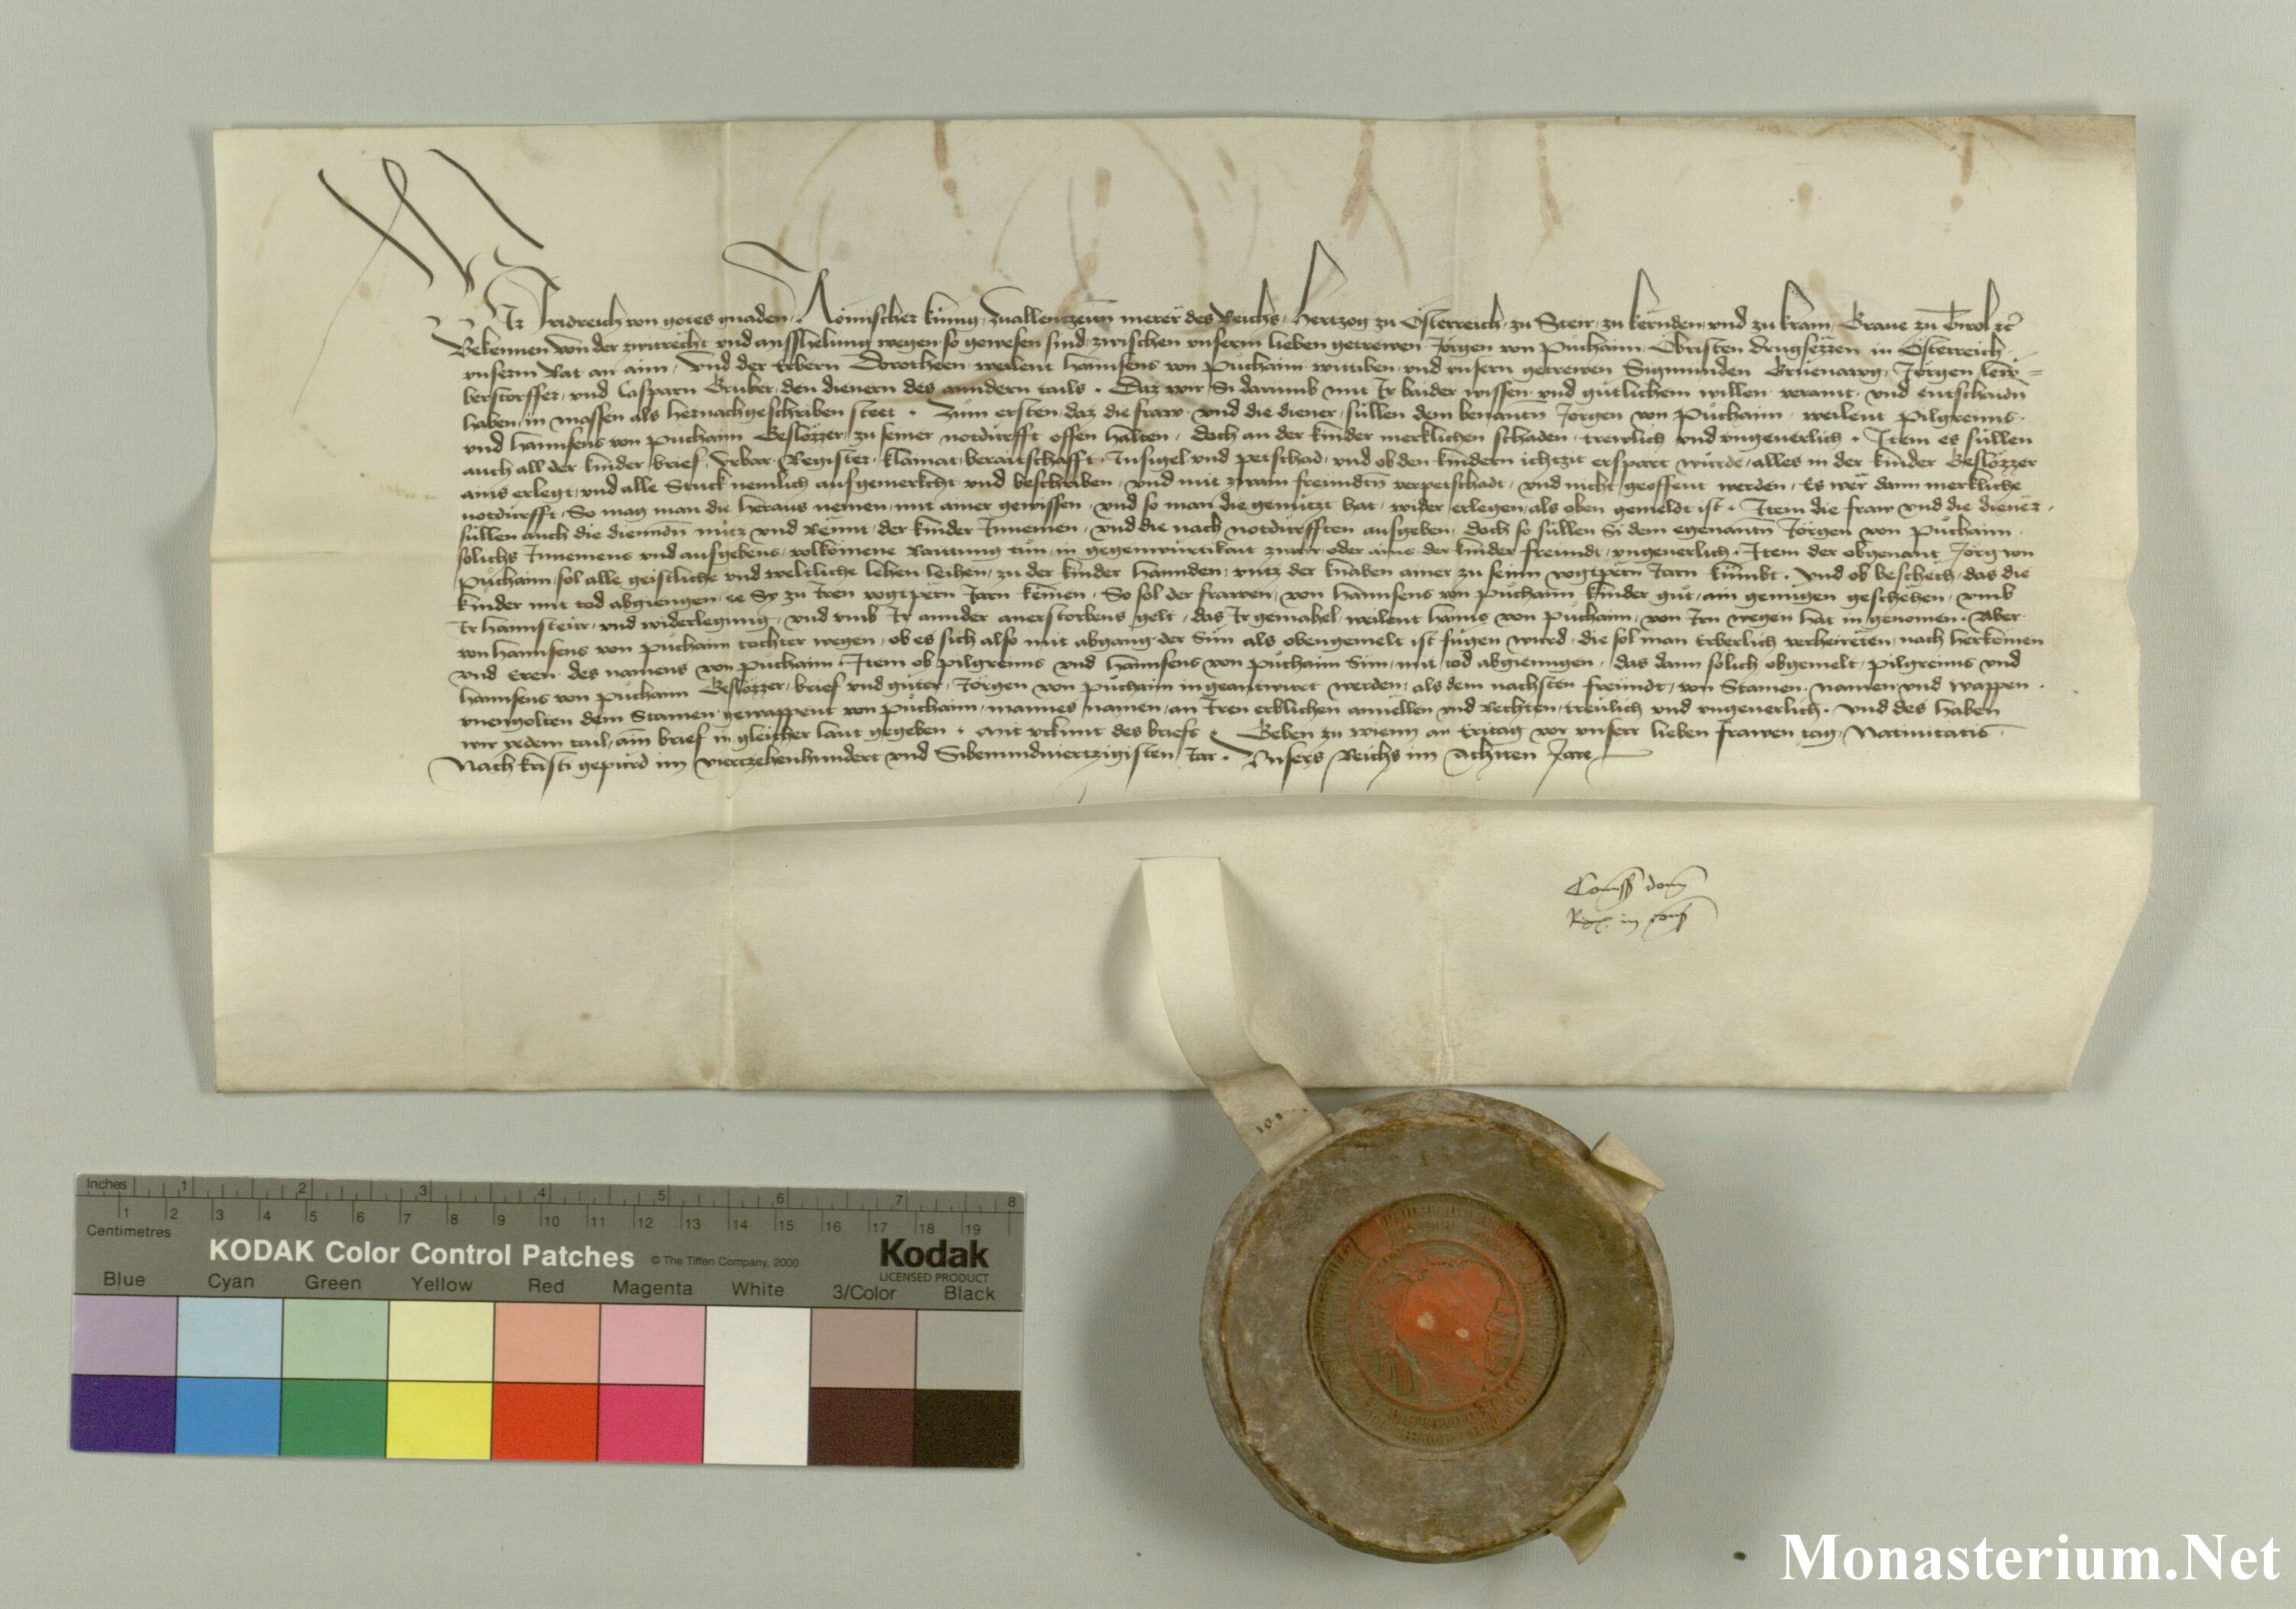 Wir Fridreich von gotes gnaden, Römischer kunig, zuallenczeitn merer des Reichs, Hertzog zu Österreich, zu Steir, zu kernden, vnd zu krain, Graue zu Tirol etc
Bekennen von der zwitrecht vnd misshelung wegen so gewesen sind, zwischen vnserm lieben getrewen Jörgen von Půchaim, Obristen drugsezzen in Österreich,
vnserm Rat an aim, vnd der Erbern Dorotheen weilent Hannsens von Půchaim wittiben, vnd vnsern getrewen Sigmunden Jörgen
berstorffer, vnd Casparn Gruber, den dienern des anndern tails. Daz wir Si darumb mit Ir baider wissen vnd gůtlichem willen veraint, vnd entschaidn
haben, in massen als hernachgeschriben steet. Zum ersten, daz die fraw, vnd die diener, sullen dem benantn Jörgen von Půchaim, weilent Pilgreims
vnd Hannsens von Půchaim Geslözzer, zu seiner notdurfft offen halten, doch an der kinder merklichen schaden, trewlich vnd vngeuerlich. Item es sullen
auch all der kinder brief, Vrbar, Register, klainat, beraitschafft, Insigel vnd petschad, vnd ob den kindern ichtzit erspart wurde, alles in der kinder Geslözzer
ains erlegt, vnd alle Stuck nemlich aufgemerkcht vnd beschriben, vnd mit zwain freundtn verpetschadt, vnd nicht geoffent werden, Es wer dann merkliche
notdurfft, So mag man die heraus nemen, mit ainer gewissen, vnd so man die genutzt hat, wider erlegen, als oben gemeldt ist. Item die fraw vnd die diener,
sullen auch die nutz vnd Rennt, der kinder Innemen, vnd die nach notdurfften ausgeben, doch so sullen Si dem egenantn Jörgen von Půchaim,
solichs Innemens vnd ausgebens, volkomene Raittung tůn, in gegenwurtikait zwair oder ains der kinder freundt, vngeuerlich. Item der obgenant Jörg von
Půchaim, sol alle geistliche vnd weltliche lehen leihen, zu der kinder hannden, vntz der knaben ainer zu seinn vogtpern Jarn kumbt. Vnd ob beschech, das die
kinder mit tod abgiengen, ee Sy zu Iren vogtpern Jarn kemen, So sol der frawen, von Hannsens von Půchaim kinder gůt, ain genugen geschehen, vmb
Ir haimsteur, vnd widerlegung, vnd vmb Ir annder anerstorbens gelt, das Ir gemahel, weilent Hanns von Půchaim, von Irn wegen hat in genomen. Aber
von Hannsens von Půchaim tochter wegen, ob es sich also mit abgang der Sun als obengemelt ist fugen wurd, die sol man Erberlich verheireten, nach herkomen
vnd Eren des namens von Půchaim. Item ob Pilgreims vnd Hannsens von Půchaim Sun, mit tod abgiengen, das dann solich obgemelt, Pilgreims vnd
Hannsens von Půchaim Geslözzer, brief vnd gůter, Jörgen von Půchaim ingeantwurt werden, als dem nachsten freundt, von Stamen, namen vnd wappen,
vnengolten dem Stamen gewappent von Půchaim, mannes namen, an Iren erblichen anuellen vnd Rechten, treulich vnd vngeuerlich. Vnd des haben
wir yedem tail, ain brief in gleicher laut gegeben. Mit vrkunt des briefs. Geben zu wienn an Eritag vor vnserr lieben frawen tag, Natiuitatis,
Nach kristi gepurd im viertzehenhundert vnd Sibenundviertzigisten Jar. Vnsers Reichs im Achten Jare
Comiss domi
Reg. in cons
Inches 1 2 3 4 5 6 7 8
1 2 3 4 5 6 7 8 9 10 11 12 13 14 15 16 17 18 19
Centimetres
KODAK Color Control Patches © The Tiffen Company, 2000 Kodak
LICENSED PRODUCT
Blue Cyan Green Yellow Red Magenta White 3/Color Black
Monasterium.Net